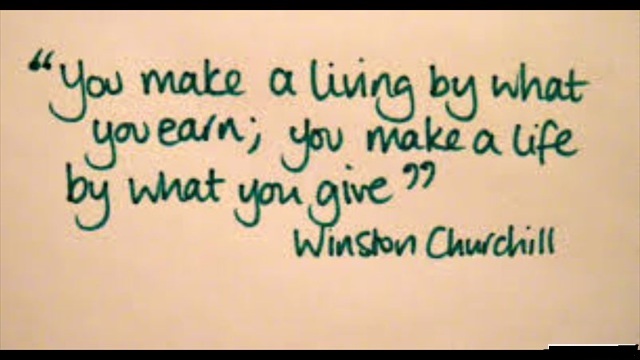 “You make a living by what
you earn; you make a life
by what you give”
Winston Churchill